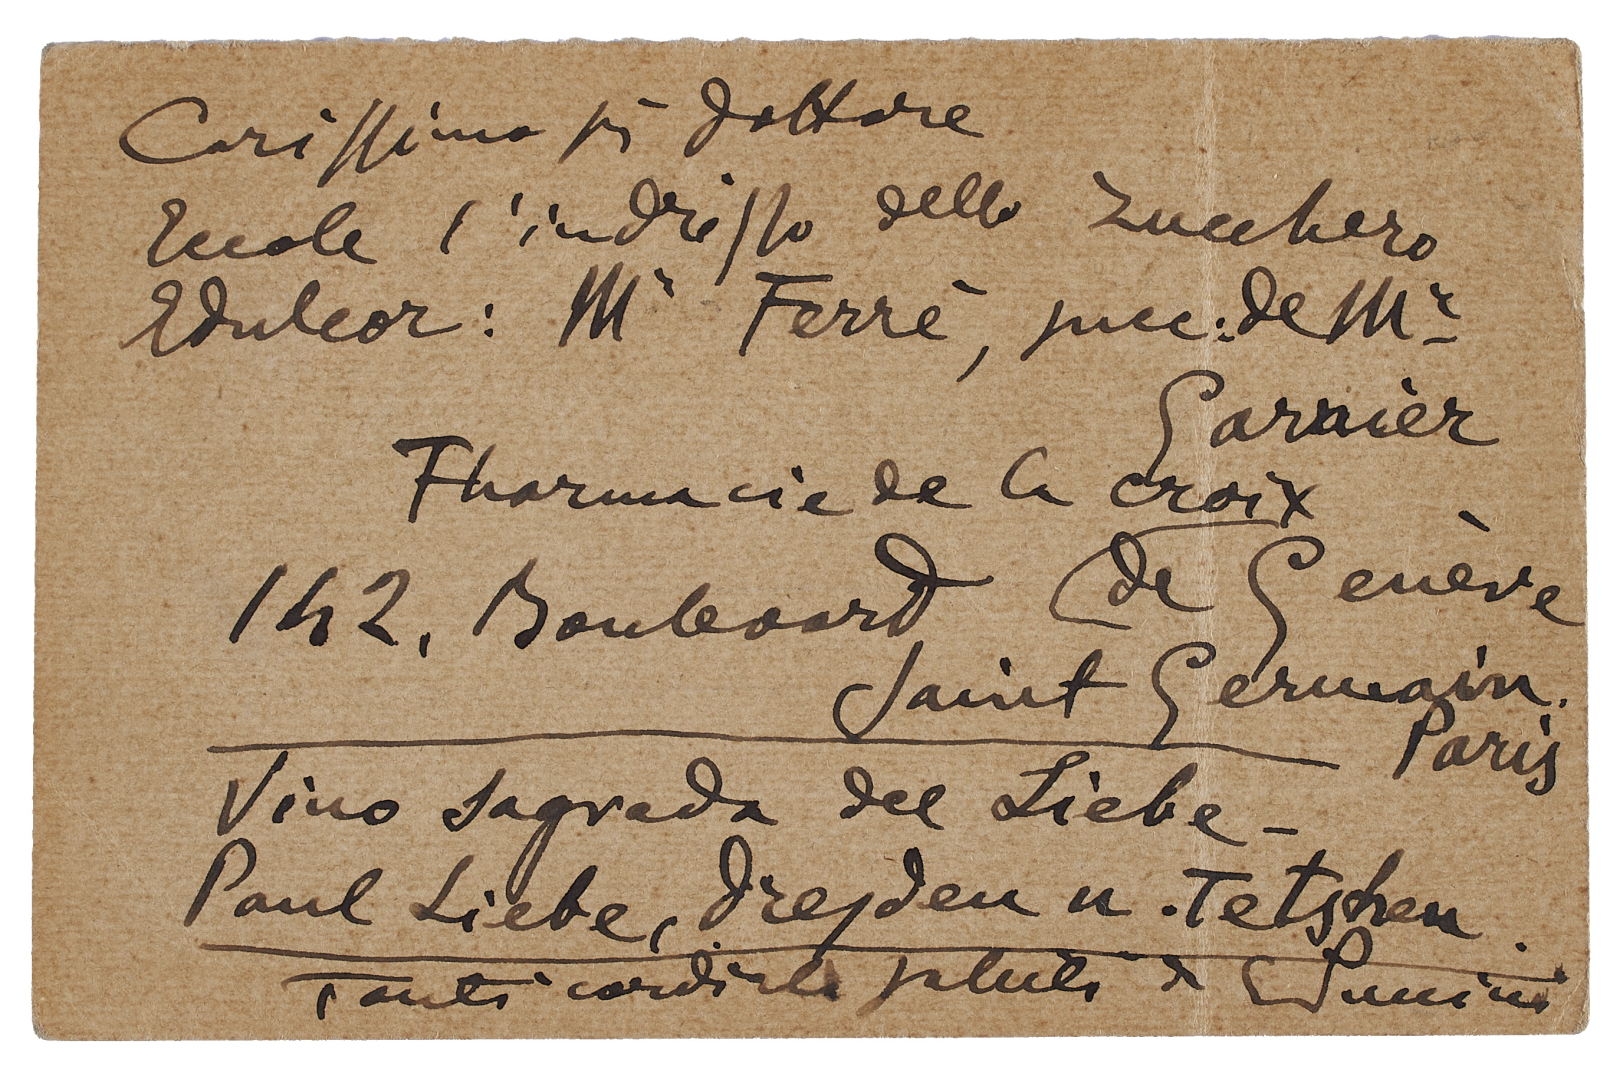 Carissimo sigr dottore
Eccole l'indrisso dello zucchero
Edulcor: Mr Ferrè, succ: de Mr
Garnier
Fharmacie de la croix
de Genève
142, Boulevard
Saint Germain.
Paris
Vino sagrada del Liebe –
Paul Liebe, Dresden u. Tetshen.
Tanti cordiali saluti di Puccini